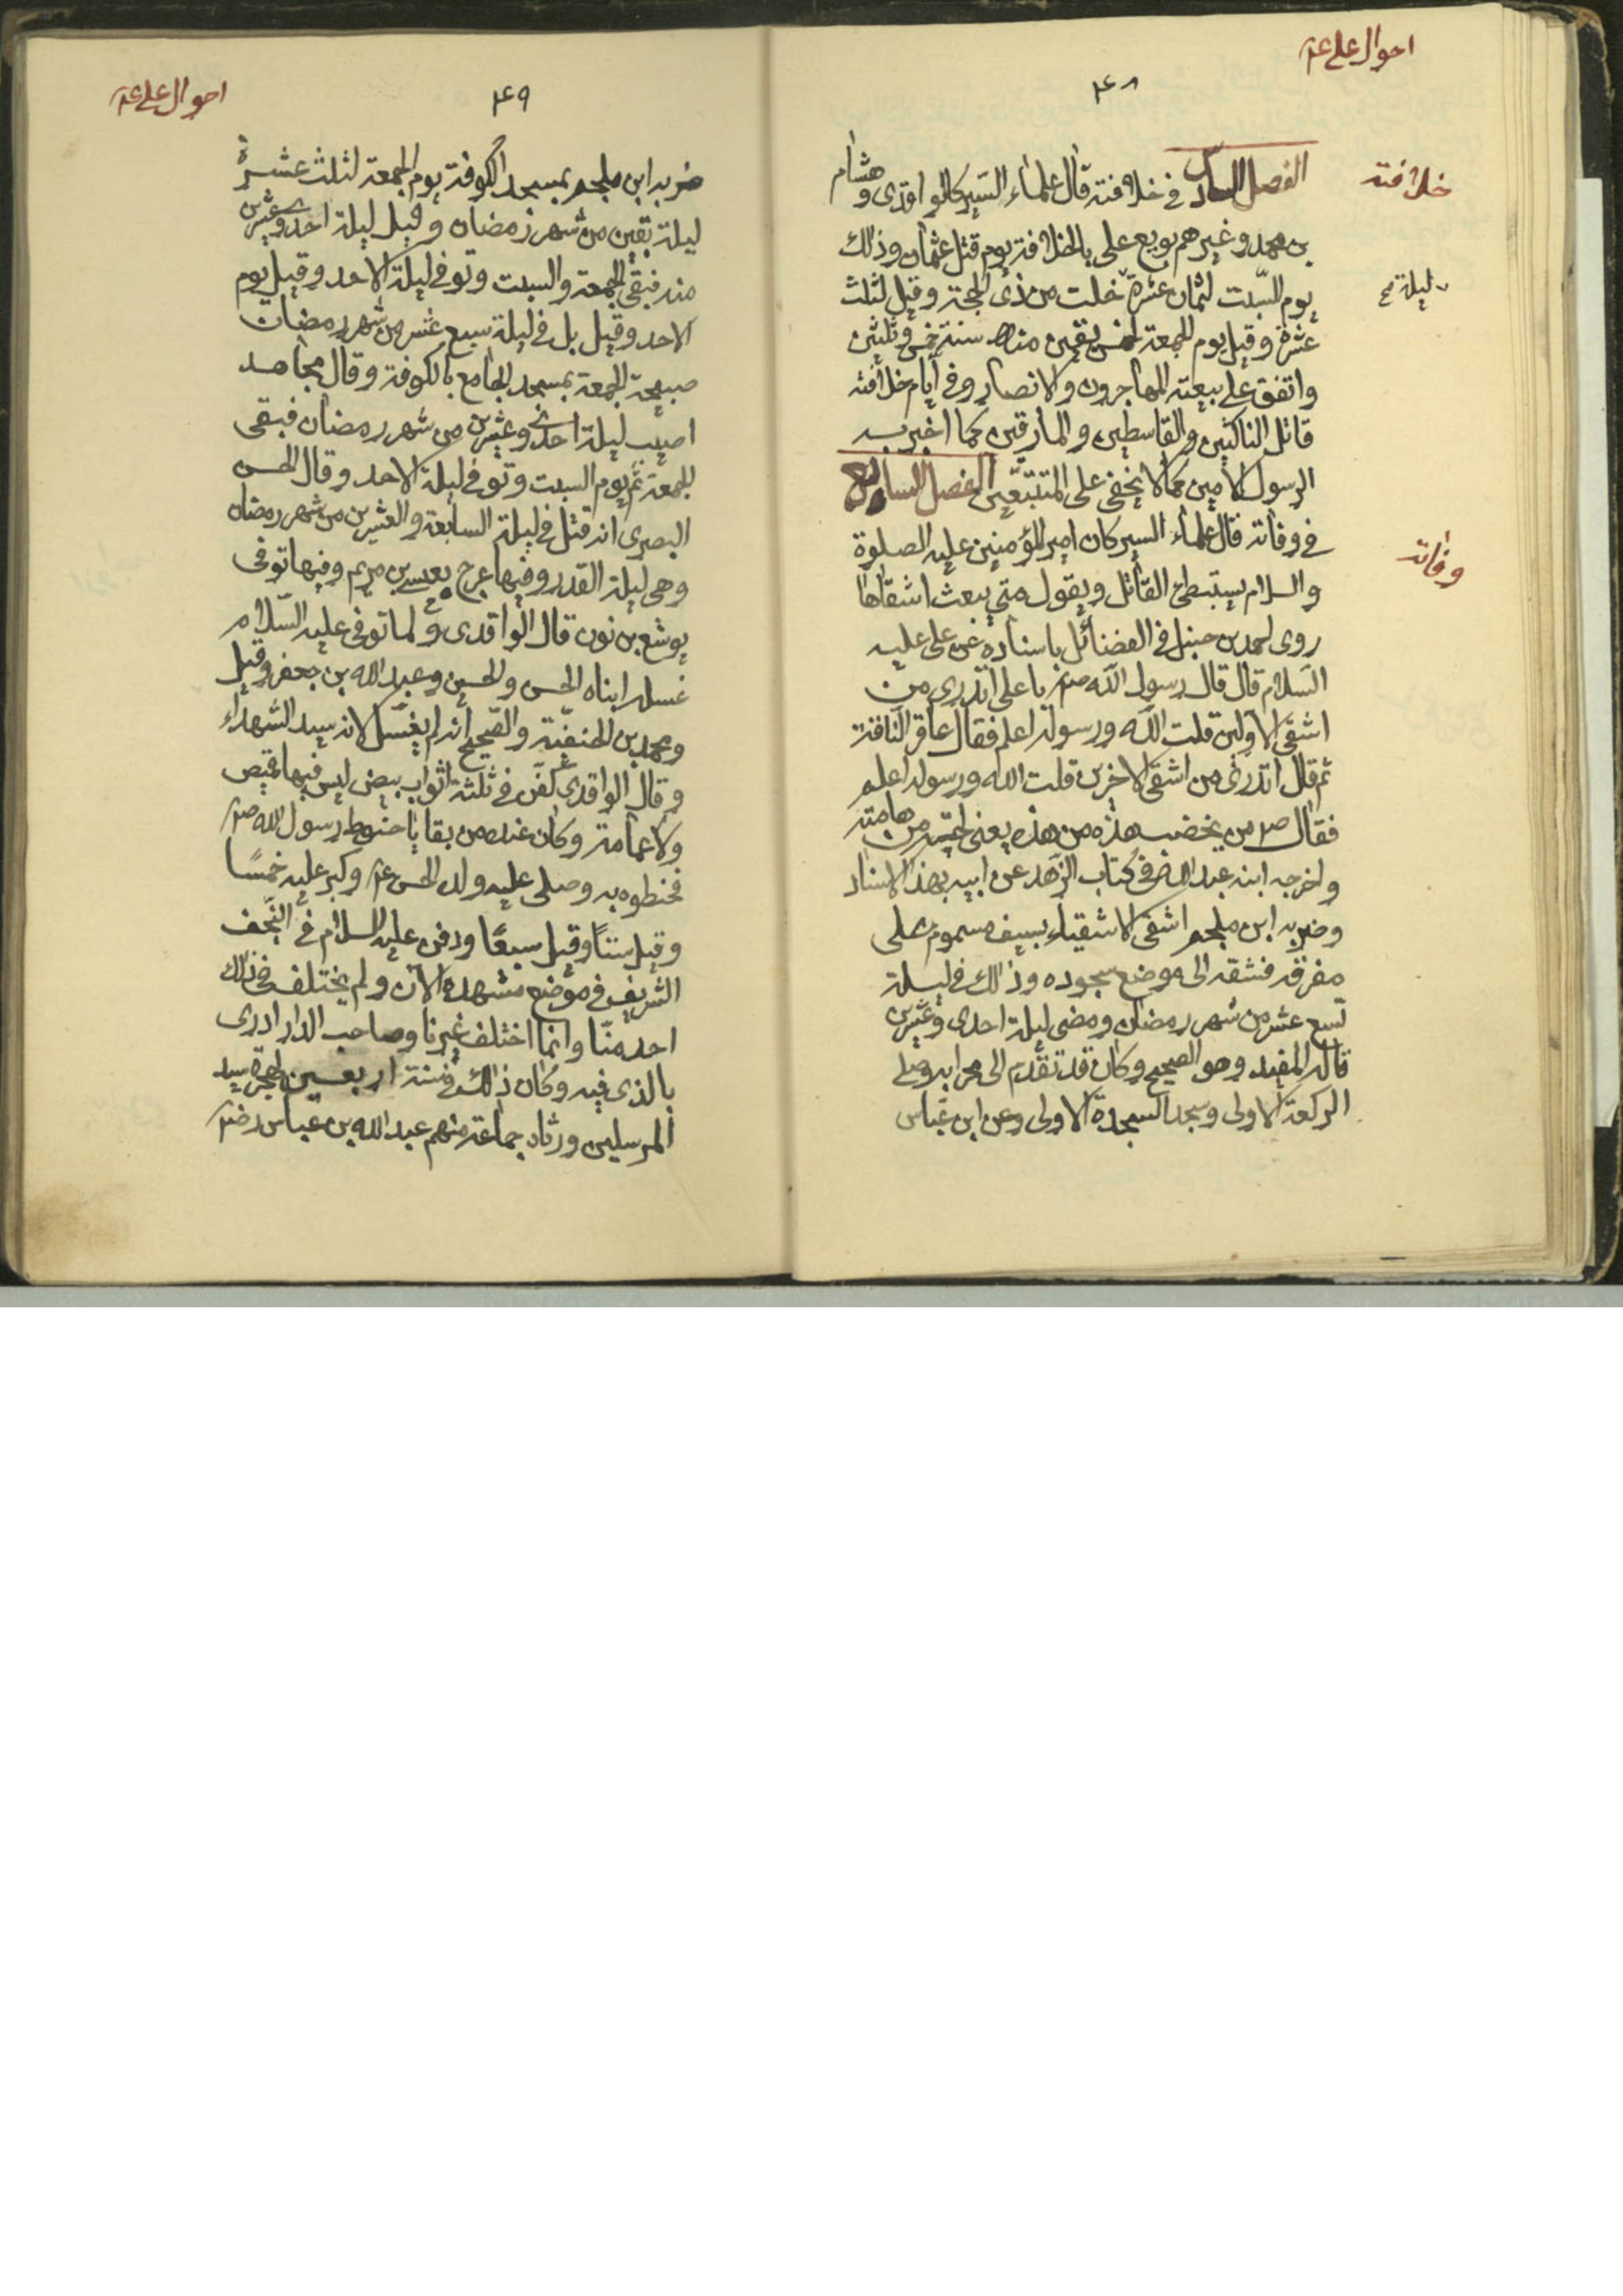 احوال علي ع
٤٨
خلافته
الفصل السادس في خلافته قال علماء السير كالواقدي وهشام
بن محمد وغيرهم بويع علي بالخلافة يوم قتل عثمان وذلك
يوم السبت لثمان عشرة خلت من ذي الحجة وقيل لثلث
ليلة صح
عشرة وقيل يوم الجمعة لخمس بقين منها سنة خمس وثلثين
واتفق على بيعته المهاجرون والانصار وفي ايام خلافته
قاتل الناكثين والقاسطين والمارقين كما اخبر به
الرسول الامين مما لا يخفى على المتتبعين الفصل السابع
وفاته
في وفاته قال علماء السير كان امير المؤمنين عليه الصلوة
والسلام يستبطئ القاتل ويقول متى يبعث اشقاها
روى احمد بن حنبل في الفضائل باسناده عن علي عليه
السلام قال قال رسول الله صلعم يا علي اتدري من
اشقى الاولين قلت الله ورسوله اعلم فقال عاقر الناقة
ثم قال اتدري من اشقى الاخرين قلت الله ورسوله اعلم
فقال ص من يخضب هذه من هذه يعني لحيته من هامته
واخرجه ابنه عبد الله في كتاب الزهد عن ابيه بهذا الاسناد
وضربه ابن ملجم اشقى الاشقياء بسيف مسموم على
مفرقه فشقه الى موضع سجوده وذلك في ليلة
تسع عشر من شهر رمضان ومضى ليلة احدى وعشرين
قاله المفيد وهو الصحيح وكان قد تقدم الى محرابه وصلى
الركعة الاولى وسجد السجدة الاولى وعن ابن عباس
احوال علي ع
٤٩
ضربه ابن ملجم بمسجد الكوفة يوم الجمعة لثلث عشرة
ليلة بقين من شهر رمضان وقيل ليلة احدى وعشرين
منه فبقى الجمعة والسبت وتوفي ليلة الاحد وقيل يوم
الاحد وقيل بل في ليلة سبع عشر من شهر رمضان
صبيحة الجمعة بمسجد الجامع بالكوفة وقال مجاهد
اصيب ليلة احدى وعشرين من شهر رمضان فبقى
الجمعة ثم يوم السبت وتوفي ليلة الاحد وقال الحسن
البصري انه قتل في ليلة السابعة والعشرين من شهر رمضان
وهي ليلة القدر وفيها عرج بعيسى بن مريم وفيها توفى
يوشع بن نون قال الواقدي ولما توفى عليه السلام
غسله ابناه الحسن والحسين وعبد الله بن جعفر وقيل
ومحمد بن الحنفية والصحيح انه لم يغسل لانه سيد الشهداء
وقال الواقدي كفن في ثلثة اثواب بيض ليس فيها قميص
ولا عمامة وكان عنده من بقايا حنوط رسول الله صلعم
فحنطوه به وصلى عليه ولده الحسن ع وكبر عليه خمسًا
وقيل ستًا وقيل سبعًا ودفن عليه السلام في النجف
الشريف في موضع مشهده الآن ولم يختلف في ذلك
احد منّا وانما اختلف غيرنا وصاحب الدار ادرى
بالذي فيه وكان ذلك في سنة اربعين لهجرة سيد
المرسلين ورثاه جماعة منهم عبد الله بن عباس رض